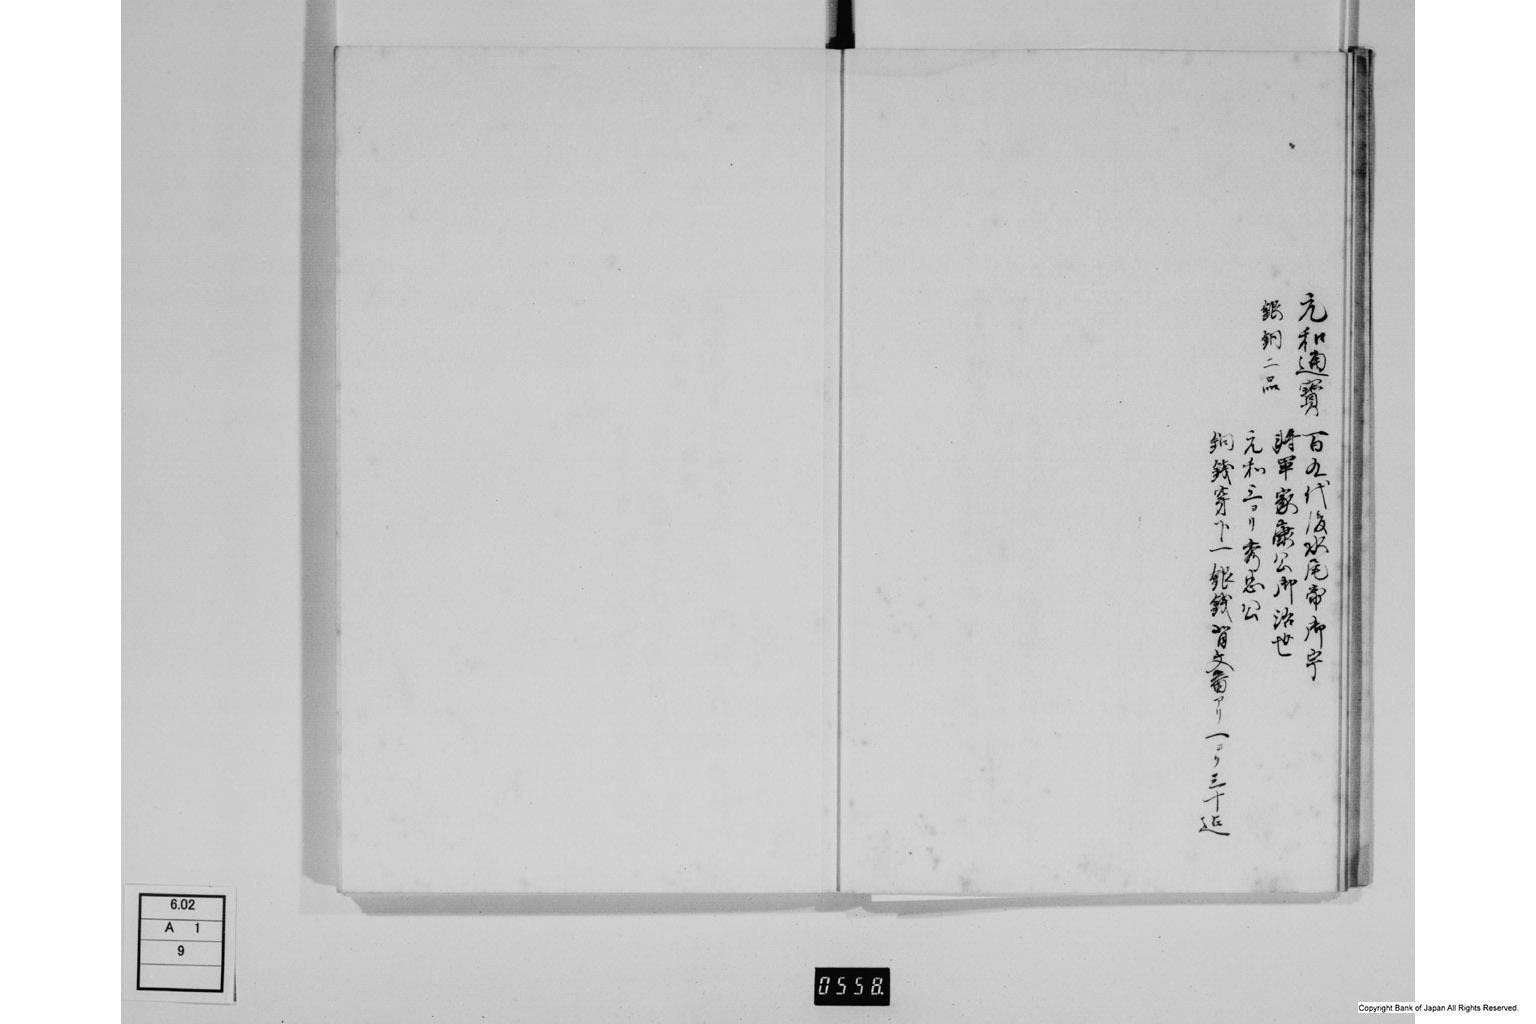 元和通寳
銀銅二品
百九代後水尾帝御宇
將軍家康公御治世
元和三ヨリ秀忠公
銅銭穿下一銀銭背文番アリ一ヨリ三十迠
6.02
A 1
9
0558.
Copyright Bank of Japan All Rights Reserved.